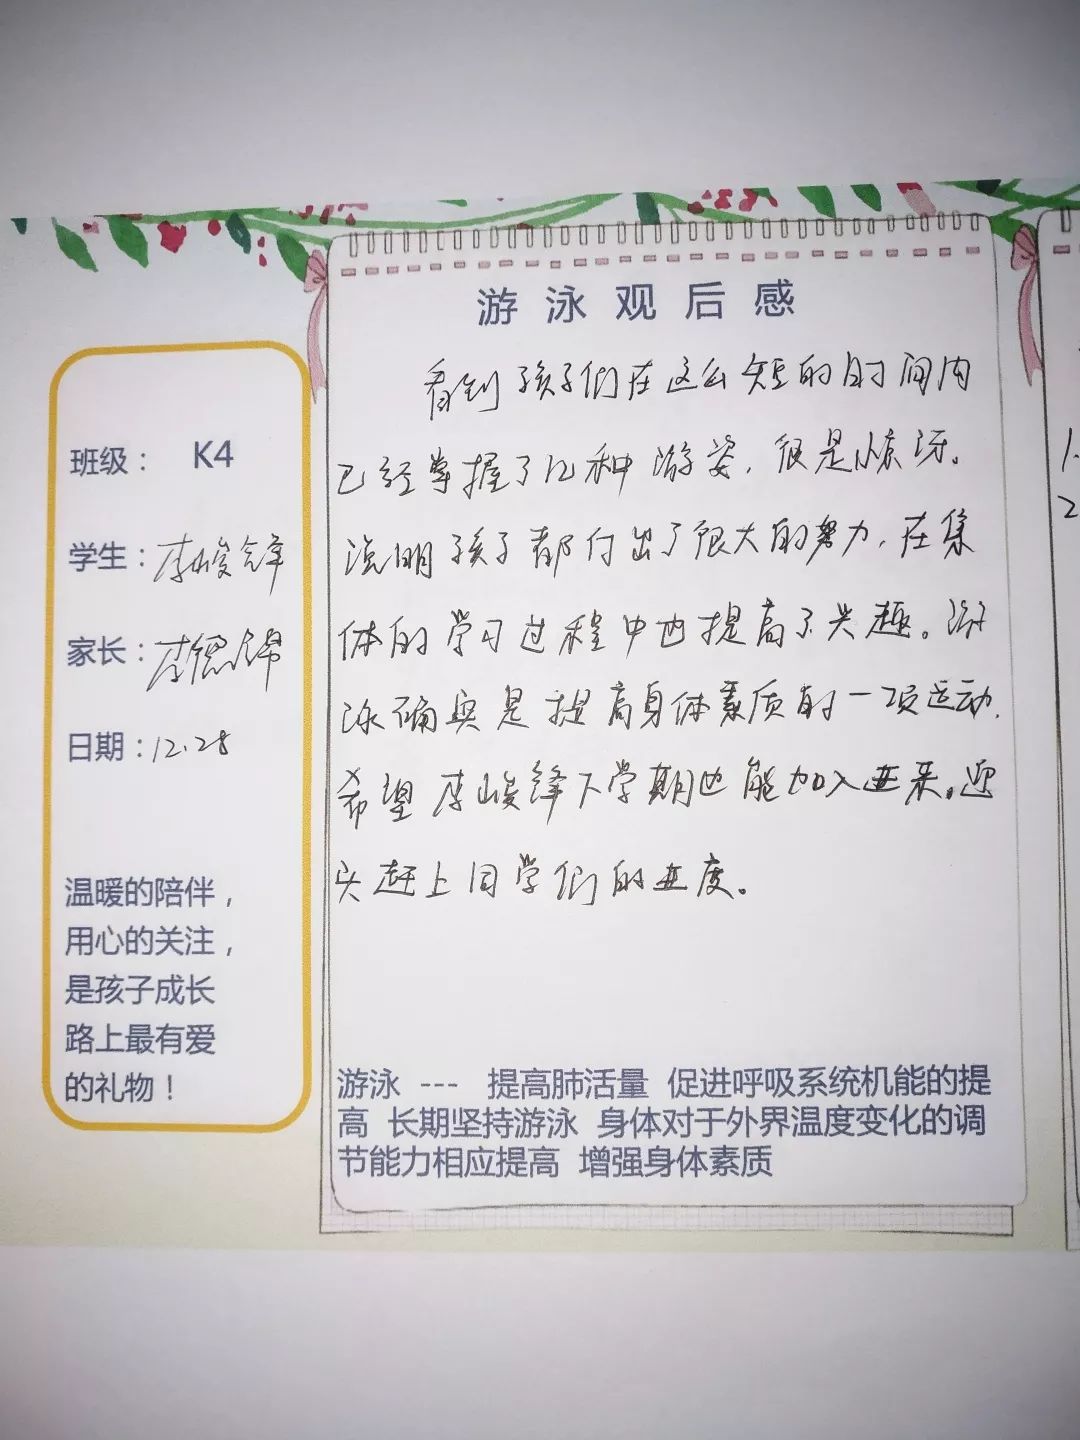 班级： K4
学生：李峻锋
家长：李德锦
日期：12.28
温暖的陪伴，
用心的关注，
是孩子成长
路上最有爱
的礼物！
游泳观后感
看到孩子们在这么短的时间内
已经掌握了几种游姿，很是惊讶。
说明孩子都付出了很大的努力，在集
体的学习过程中也提高了兴趣。游
泳确实是提高身体素质的一项运动，
希望李峻锋下学期也能加入进来。迎
头赶上同学们的进度。
游泳 --- 提高肺活量 促进呼吸系统机能的提
高 长期坚持游泳 身体对于外界温度变化的调
节能力相应提高 增强身体素质
1.
2